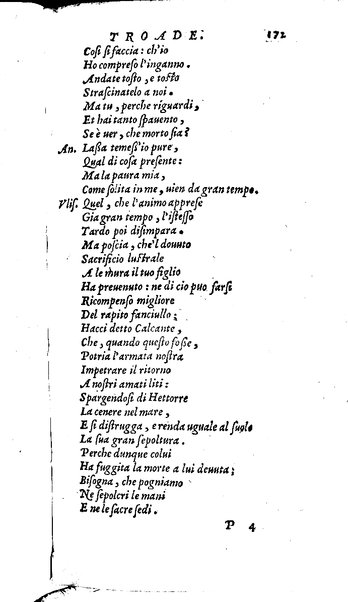 TROADE. 172
Cosi si faccia: ch'io
Ho compreso l'inganno.
Andate tosto, e tosto
Strascinatelo a noi.
Ma tu, perche riguardi,
Et hai tanto spauento,
Se è uer, che morto sia?
An. Lassa temess'io pure,
Qual di cosa presente:
Ma la paura mia,
Come solita in me, uien da gran tempo.
Vlis. Quel, che l'animo apprese
Gia gran tempo, l'istesso
Tardo poi disimpara.
Ma poscia, che'l douuto
Sacrificio lustrale
A le mura il tuo figlio
Ha preuenuto: ne di cio puo farsi
Ricompenso migliore
Del rapito fanciullo;
Hacci detto Calcante,
Che, quando questo fosse,
Potria l'armata nostra
Impetrare il ritorno
A nostri amati liti:
Spargendosi di Hettorre
La cenere nel mare,
E si distrugga, e renda uguale al suolo
La sua gran sepoltura.
Perche dunque colui
Ha fuggita la morte a lui deuuta;
Bisogna, che pogniamo
Ne sepolcri le mani
E ne le sacre sedi.
P 4